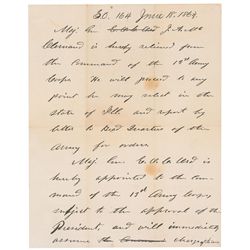 S.O. 164 June 18. 1863.
Maj. Gen. J. A. Mc
Clernand is hereby relieved from
the command of the 13th Army
Corps He will proceed to any
point he may select in the
state of Ill. and report by
letter to Head Quarters of the
Army for orders
Maj. Gen. E. O. C. Ord is
hereby appointed to the com-
mand of the 13th Army Corps
subject to the approval of the
President, and will immediately
assume the charge of same